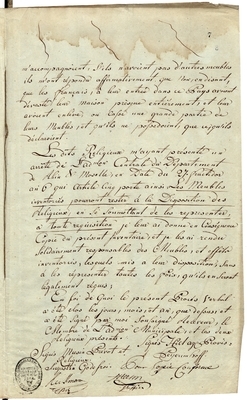 m'accompagnoient. S'ils n'avoient pas d'autres meubles
ils m'ont répondu affirmativement que non, en disant,
que les français, à leur entrée dans ce Pays avoient
dévasté leur maison presque entièrement, et leur
avoient enlevé ou cassé une grande partie de
leurs Meubles, et qu'ils ne possedoient, que ce qu'ils
declaroient
Les dits Religieux m'ayant présenté un
arrêté de l'administration Centrale du Département
de en Date du
an 6 que article cinq porte ainsi Les Meubles
inventoriés pourront rester à la Disposition des
Religieux, en se Soumettant de les representer
à toute requisition, je leur ai donné en Consequence
Copie du présent inventaire, et je les ai rendu
Solidairement responsables des Meubles et effets
inventoriés, lesquels mis à leur disposition, Sauf
à les répresenter toutes les fois, qu'ils en seront
légalement requis;
En foi de Quoi le présent Procès Verbal
a été clos les jours, mois, et an, que dessus, et
a été signé par moi Soussigné
Membre de l'adm. Municipale, et les deux
Religieux présents.
Signé
Religieux
Pour Copie Conforme